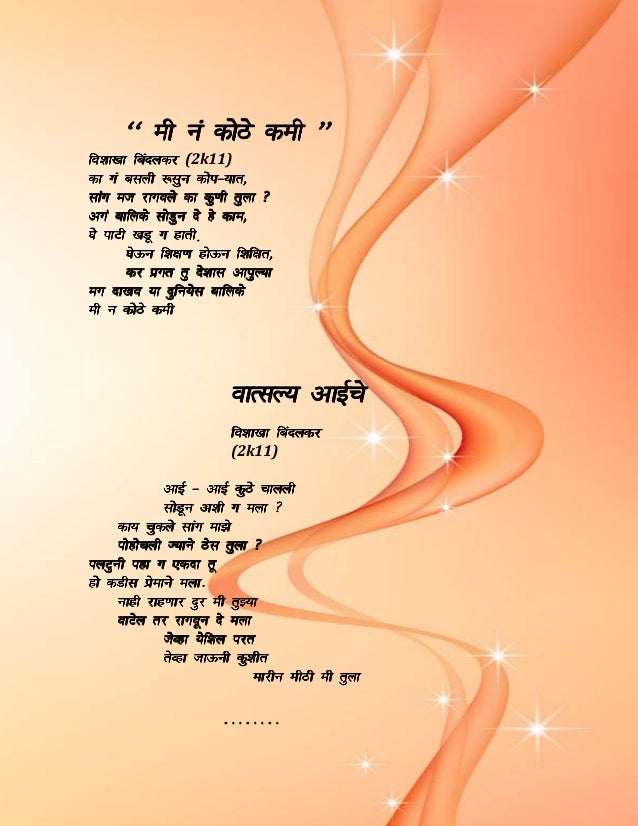 “ मी नं कोठे कमी ”
विशाखा बिंदलकर (2k11)
का गं बसली रूसुन कोप-यात,
सांग मज रागवले का कुणी तुला ?
अगं बालिके सोडुन दे हे काम,
घे पाटी खडू ग हाती.
घेऊन शिक्षण होऊन शिक्षित,
कर प्रगत तु देशास आपुल्या
मग दाखव या दुनियेस बालिके
मी न कोठे कमी
वात्सल्य आईचे
विशाखा बिंदलकर
(2k11)
आई - आई कुठे चालली
सोडून अशी ग मला ?
काय चुकले सांग माझे
पोहोचली ज्याने ठेस तुला ?
पलटुनी पहा ग एकवा तू
हो कडीस प्रेमाने मला.
नाही राहणार दुर मी तुझ्या
वाटेल तर रागवून दे मला
जेव्हा येशिल परत
तेव्हा जाऊनी कुशीत
मारीन मीठी मी तुला
........